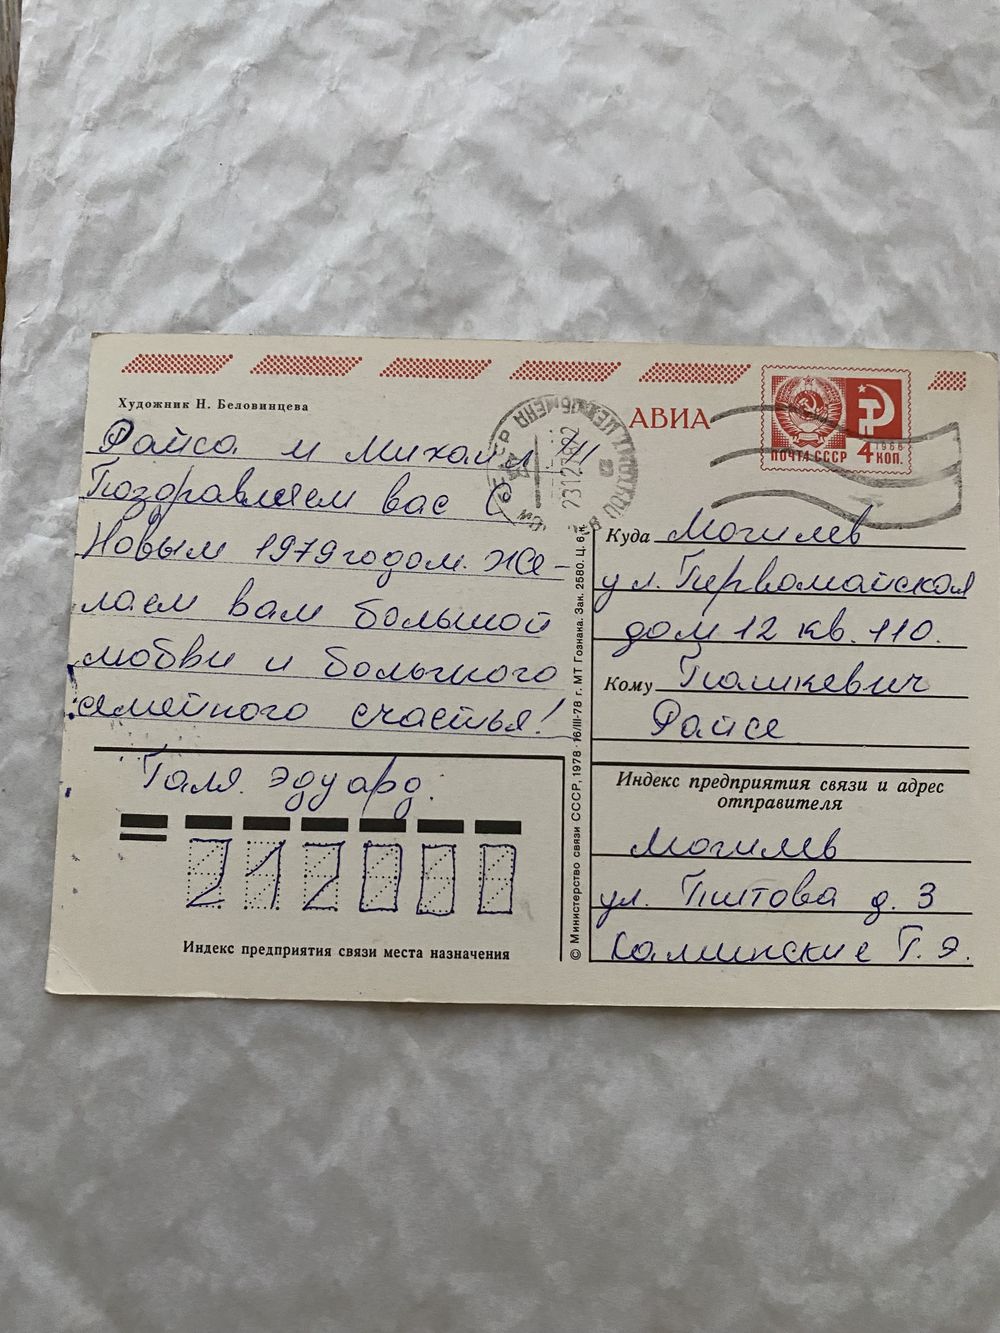 Художник Н. Беловинцева
АВИА
1966
ПОЧТА СССР 4 КОП.
23 12 78
Райса и Михаил!!!
Поздравляем вас с
Новым 1979 годом. Же-
лаем вам большой
любви и большого
семейного счастья!
Галя. Эдуард.
Куда Могилев
ул. Первомайская
дом 12 кв. 110.
Кому Пашкевич
Раисе
Индекс предприятия связи и адрес
отправителя
Могилев
ул. д. 3
Калинские Г. Э.
212000
Индекс предприятия связи места назначения
© Министерство связи СССР, 1978 · 16/III-78 г. МТ Гознака. Зак. 2580. Ц. 6 к.